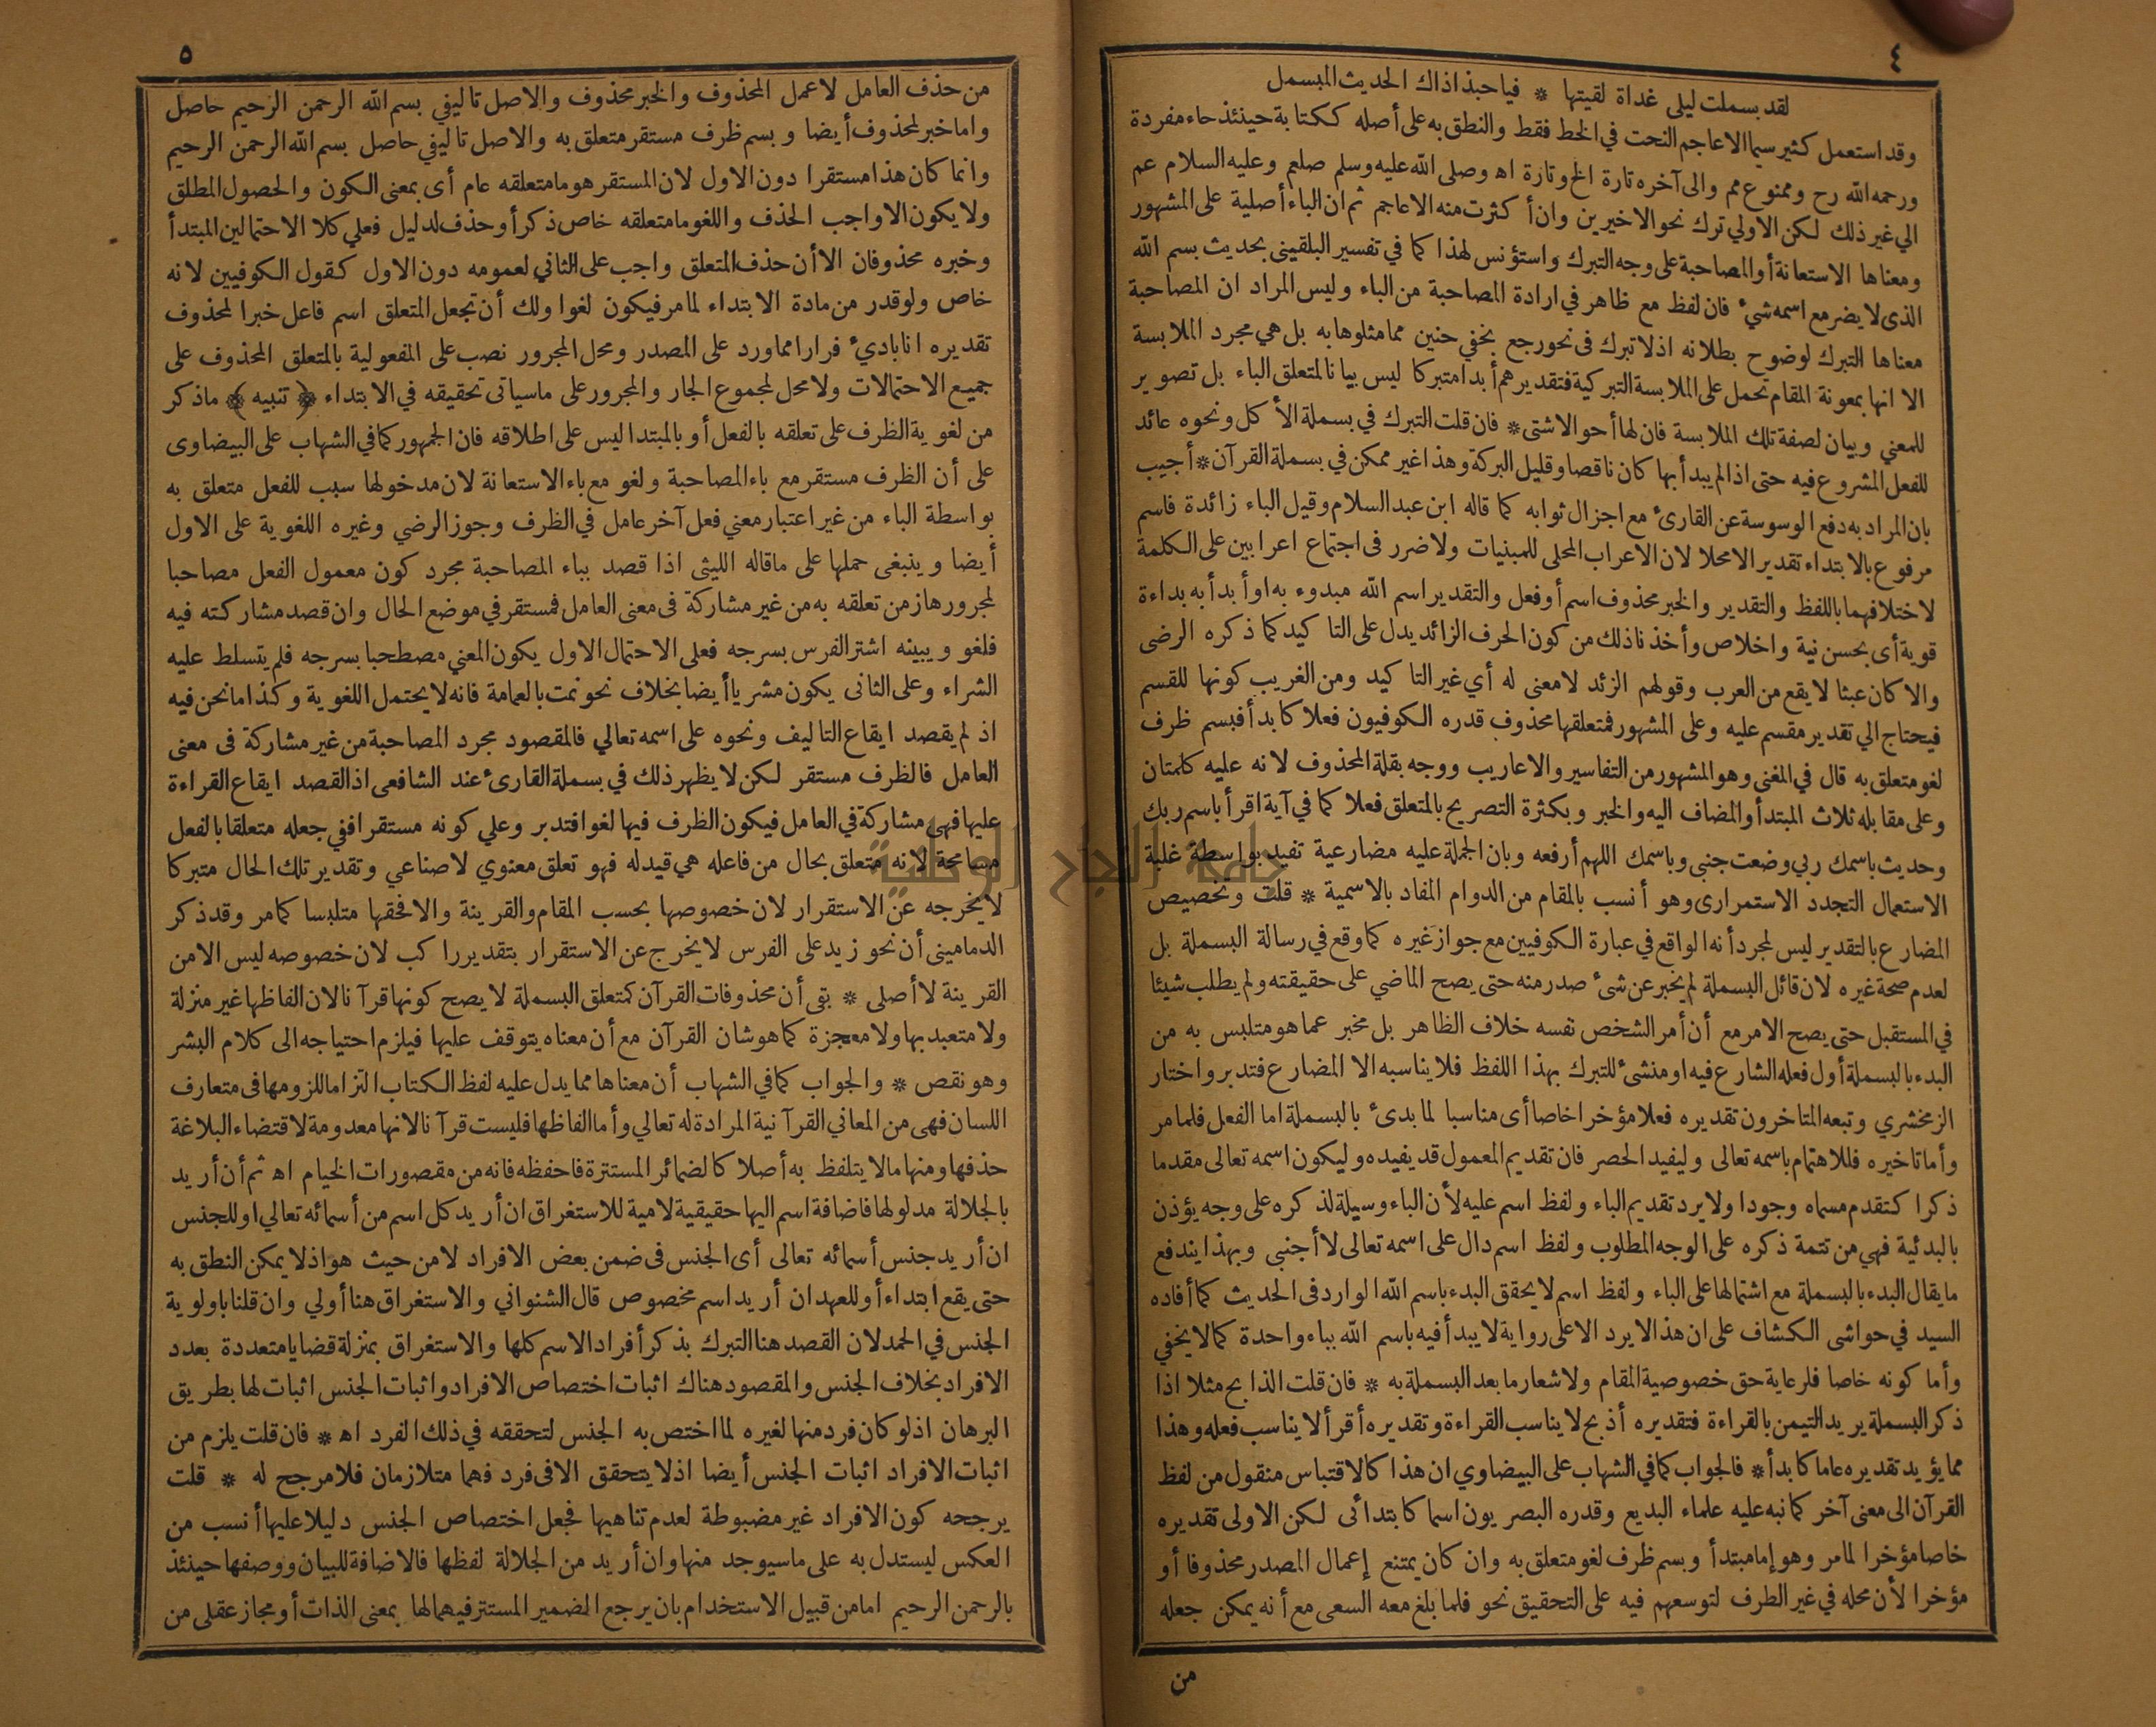 ٤
لقد بسملت ليلى غداة لقيتها * فيا حبذا ذاك الحديث المبسمل
وقد استعمل كثير سيما الاعاجم النحت في الخط فقط والنطق به على أصله ككتابة حينئذ حاء مفردة
ورحمه الله رح وممنوع مم والى آخره تارة الخ وتارة اه وصلى الله عليه وسلم صلعم وعليه السلام عم
الي غير ذلك لكن الاولي ترك نحو الاخيرين وان أكثرت منه الاعاجم ثم ان الباء أصلية على المشهور
ومعناها الاستعانة أو المصاحبة على وجه التبرك واستؤنس لهذا كما في تفسير البلقيني بحديث بسم الله
الذى لا يضر مع اسمه شيء فان لفظ مع ظاهر في ارادة المصاحبة من الباء وليس المراد ان المصاحبة
معناها التبرك لوضوح بطلانه اذ لا تبرك فى نحو رجع بخفي حنين مما مثلوها به بل هي مجرد الملابسة
الا انها بمعونة المقام تحمل على الملابسة التبركية فتقديرهم أبدا متبركا ليس بيانا لمتعلق الباء بل تصوير
للمعني وبيان لصفة تلك الملابسة فان لها أحوالا شتى * فان قلت التبرك في بسملة الأكل ونحوه عائد
للفعل المشروع فيه حتى اذا لم يبدأ بها كان ناقصا وقليل البركة وهذا غير ممكن في بسملة القرآن * أجيب
بان المراد به دفع الوسوسة عن القارئ مع اجزال ثوابه كما قاله ابن عبد السلام وقيل الباء زائدة فاسم
مرفوع بالابتداء تقديرا لا محلا لان الاعراب المحلى للمبنيات ولا ضرر فى اجتماع اعرابين على الكلمة
لاختلافهما باللفظ والتقدير والخبر محذوف اسم أو فعل والتقدير اسم الله مبدوء به او أبدأ به بداءة
قوية أى بحسن نية واخلاص وأخذنا ذلك من كون الحرف الزائد يدل على التاكيد كما ذكره الرضى
والا كان عبثا لا يقع من العرب وقولهم الزئد لا معنى له أي غير التاكيد ومن الغريب كونها للقسم
فيحتاج الي تقدير مقسم عليه وعلى المشهور فمتعلقها محذوف قدره الكوفيون فعلا كابدأ فبسم ظرف
لغو متعلق به قال في المغنى وهو المشهور من التفاسير والاعاريب ووجه بقلة المحذوف لانه عليه كلمتان
وعلى مقابله ثلاث المبتدأ والمضاف اليه والخبر وبكثرة التصريح بالمتعلق فعلا كما في آية اقرأ باسم ربك
وحديث باسمك ربي وضعت جنبى وباسمك اللهم أرفعه وبان الجملة عليه مضارعية تفيد بواسطة غلبة
الاستعمال التجدد الاستمرارى وهو أنسب بالمقام من الدوام المفاد بالاسمية * قلت وتخصيص
المضارع بالتقدير ليس لمجرد أنه الواقع في عبارة الكوفيين مع جواز غيره كما وقع في رسالة البسملة بل
لعدم صحة غيره لان قائل البسملة لم يخبر عن شىء صدر منه حتى يصح الماضي على حقيقته ولم يطلب شيئا
في المستقبل حتى يصح الامر مع أن أمر الشخص نفسه خلاف الظاهر بل مخبر عما هو متلبس به من
البدء بالبسملة أول فعله الشارع فيه او منشئ للتبرك بهذا اللفظ فلا يناسبه الا المضارع فتدبر واختار
الزمخشري وتبعه المتاخرون تقديره فعلا مؤخرا خاصا أى مناسبا لما بدئ بالبسملة اما الفعل فلما مر
وأما تاخيره فللاهتمام باسمه تعالى وليفيد الحصر فان تقديم المعمول قد يفيده وليكون اسمه تعالى مقدما
ذكرا كتقدم مسماه وجودا ولا يرد تقديم الباء ولفظ اسم عليه لأن الباء وسيلة لذكره على وجه يؤذن
بالبدئية فهي من تتمة ذكره على الوجه المطلوب ولفظ اسم دال على اسمه تعالى لا أجنبى وبهذا يندفع
ما يقال البدء بالبسملة مع اشتمالها على الباء ولفظ اسم لا يحقق البدء باسم الله الوارد فى الحديث كما أفاده
السيد في حواشى الكشاف على ان هذا لا يرد الا على رواية لا يبدأ فيه باسم الله بباء واحدة كما لا يخفي
وأما كونه خاصا فلرعاية حق خصوصية المقام ولاشعار ما بعد البسملة به * فان قلت الذابح مثلا اذا
ذكر البسملة يريد التيمن بالقراءة فتقديره أذبح لا يناسب القراءة وتقديره أقرأ لا يناسب فعله وهذا
مما يؤيد تقديره عاما كابدأ * فالجواب كما في الشهاب على البيضاوي ان هذا كالاقتباس منقول من لفظ
القرآن الى معنى آخر كما نبه عليه علماء البديع وقدره البصريون اسما كابتدائى لكن الاولى تقديره
خاصا مؤخرا لما مر وهو إما مبتدأ وبسم ظرف لغو متعلق به وان كان يمتنع إعمال المصدر محذوفا أو
مؤخرا لأن محله في غير الظرف لتوسعهم فيه على التحقيق نحو فلما بلغ معه السعى مع أنه يمكن جعله
من
٥
من حذف العامل لا عمل المحذوف والخبر محذوف والاصل تاليفي بسم الله الرحمن الرحيم حاصل
واما خبر لمحذوف أيضا وبسم ظرف مستقر متعلق به والاصل تاليفي حاصل بسم الله الرحمن الرحيم
وانما كان هذا مستقرا دون الاول لان المستقر هو ما متعلقه عام أى بمعنى الكون والحصول المطلق
ولا يكون الا واجب الحذف واللغو ما متعلقه خاص ذكر أو حذف لدليل فعلي كلا الاحتمالين المبتدأ
وخبره محذوفان الا أن حذف المتعلق واجب على الثاني لعمومه دون الاول كقول الكوفيين لانه
خاص ولو قدر من مادة الابتداء لما مر فيكون لغوا ولك أن تجعل المتعلق اسم فاعل خبرا لمحذوف
تقديره انا بادئ فرارا مما ورد على المصدر ومحل المجرور نصب على المفعولية بالمتعلق المحذوف على
جميع الاحتمالات ولا محل لمجموع الجار والمجرور على ماسياتى تحقيقه في الابتداء ﴿تنبيه﴾ ما ذكر
من لغوية الظرف على تعلقه بالفعل أو بالمبتدا ليس على اطلاقه فان الجمهور كما في الشهاب على البيضاوى
على أن الظرف مستقر مع باء المصاحبة ولغو مع باء الاستعانة لان مدخولها سبب للفعل متعلق به
بواسطة الباء من غير اعتبار معني فعل آخر عامل في الظرف وجوز الرضي وغيره اللغوية على الاول
أيضا وينبغى حملها على ماقاله الليثى اذا قصد بباء المصاحبة مجرد كون معمول الفعل مصاحبا
لمجرورها زمن تعلقه به من غير مشاركة فى معنى العامل فمستقر في موضع الحال وان قصد مشاركته فيه
فلغو ويبينه اشتر الفرس بسرجه فعلى الاحتمال الاول يكون المعني مصطحبا بسرجه فلم يتسلط عليه
الشراء وعلى الثانى يكون مشريا أيضا بخلاف نحو نمت بالعمامة فانه لا يحتمل اللغوية وكذا ما نحن فيه
اذ لم يقصد ايقاع التاليف ونحوه على اسمه تعالي فالمقصود مجرد المصاحبة من غير مشاركة فى معنى
العامل فالظرف مستقر لكن لا يظهر ذلك في بسملة القارئ عند الشافعى اذ القصد ايقاع القراءة
عليها فهى مشاركة في العامل فيكون الظرف فيها لغوا فتدبر وعلي كونه مستقرا ففي جعله متعلقا بالفعل
مسامحة لانه متعلق بحال من فاعله هي قيد له فهو تعلق معنوي لا صناعي وتقدير تلك الحال متبركا
لا يخرجه عن الاستقرار لان خصوصها بحسب المقام والقرينة والا فحقها متلبسا كما مر وقد ذكر
الدمامينى أن نحو زيد على الفرس لا يخرج عن الاستقرار بتقدير راكب لان خصوصه ليس الا من
القرينة لا أصلى * بقى أن محذوفات القرآن كمتعلق البسملة لا يصح كونها قرآنا لان الفاظها غير منزلة
ولا متعبد بها ولا معجزة كما هو شان القرآن مع أن معناه يتوقف عليها فيلزم احتياجه الى كلام البشر
وهو نقص * والجواب كما في الشهاب أن معناها مما يدل عليه لفظ الكتاب التزاما للزومها فى متعارف
اللسان فهى من المعاني القرآنية المرادة له تعالي وأما الفاظها فليست قرآنا لانها معدومة لاقتضاء البلاغة
حذفها ومنها ما لا يتلفظ به أصلا كالضمائر المستترة فاحفظه فانه من مقصورات الخيام اه ثم أن أريد
بالجلالة مدلولها فاضافة اسم اليها حقيقية لامية للاستغراق ان أريد كل اسم من أسمائه تعالي او للجنس
ان أريد جنس أسمائه تعالى أى الجنس فى ضمن بعض الافراد لا من حيث هو اذ لا يمكن النطق به
حتى يقع ابتداء أو للعهد ان أريد اسم مخصوص قال الشنواني والاستغراق هنا أولي وان قلنا باولوية
الجنس في الحمد لان القصد هنا التبرك بذكر أفراد الاسم كلها والاستغراق بمنزلة قضايا متعددة بعدد
الافراد بخلاف الجنس والمقصود هناك اثبات اختصاص الافراد واثبات الجنس اثبات لها بطريق
البرهان اذ لو كان فرد منها لغيره لما اختص به الجنس لتحققه في ذلك الفرد اه * فان قلت يلزم من
اثبات الافراد اثبات الجنس أيضا اذ لا يتحقق الا فى فرد فهما متلازمان فلا مرجح له * قلت
يرجحه كون الافراد غير مضبوطة لعدم تناهيها فجعل اختصاص الجنس دليلا عليها أنسب من
العكس ليستدل به على ما سيوجد منها وان أريد من الجلالة لفظها فالاضافة للبيان ووصفها حينئذ
بالرحمن الرحيم اما من قبيل الاستخدام بان يرجع الضمير المستتر فيهما لها بمعنى الذات أو مجاز عقلى من
جامعة النجاح الوطنية